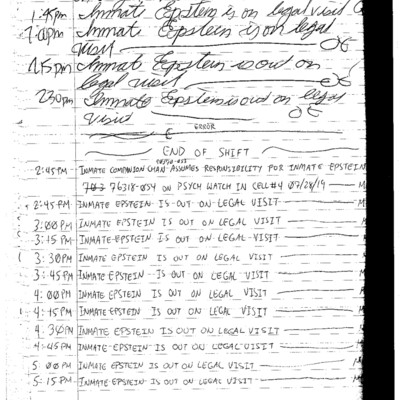 1:45pm Inmate Epstein is on legal visit
2:00pm Inmat Epstein is on legal
visit
2:15pm Inmate Epstein is out on
legal visit
2:30pm Inmate Epstein is out on legal
visit
ERROR
END OF SHIFT
2:45PM INMATE COMPANION CHAN ASSUMES RESPONSIBILITY FOR INMATE EPSTEIN
76318-054 ON PSYCH WATCH IN CELL #4 07/28/19
2:45PM INMATE EPSTEIN IS OUT ON LEGAL VISIT
3:00PM INMATE EPSTEIN IS OUT ON LEGAL VISIT
3:15PM INMATE EPSTEIN IS OUT ON LEGAL VISIT
3:30PM INMATE EPSTEIN IS OUT ON LEGAL VISIT
3:45PM INMATE EPSTEIN IS OUT ON LEGAL VISIT
4:00PM INMATE EPSTEIN IS OUT ON LEGAL VISIT
4:15PM INMATE EPSTEIN IS OUT ON LEGAL VISIT
4:30PM INMATE EPSTEIN IS OUT ON LEGAL VISIT
4:45PM INMATE EPSTEIN IS OUT ON LEGAL VISIT
5:00PM INMATE EPSTEIN IS OUT ON LEGAL VISIT
5:15PM INMATE EPSTEIN IS OUT ON LEGAL VISIT